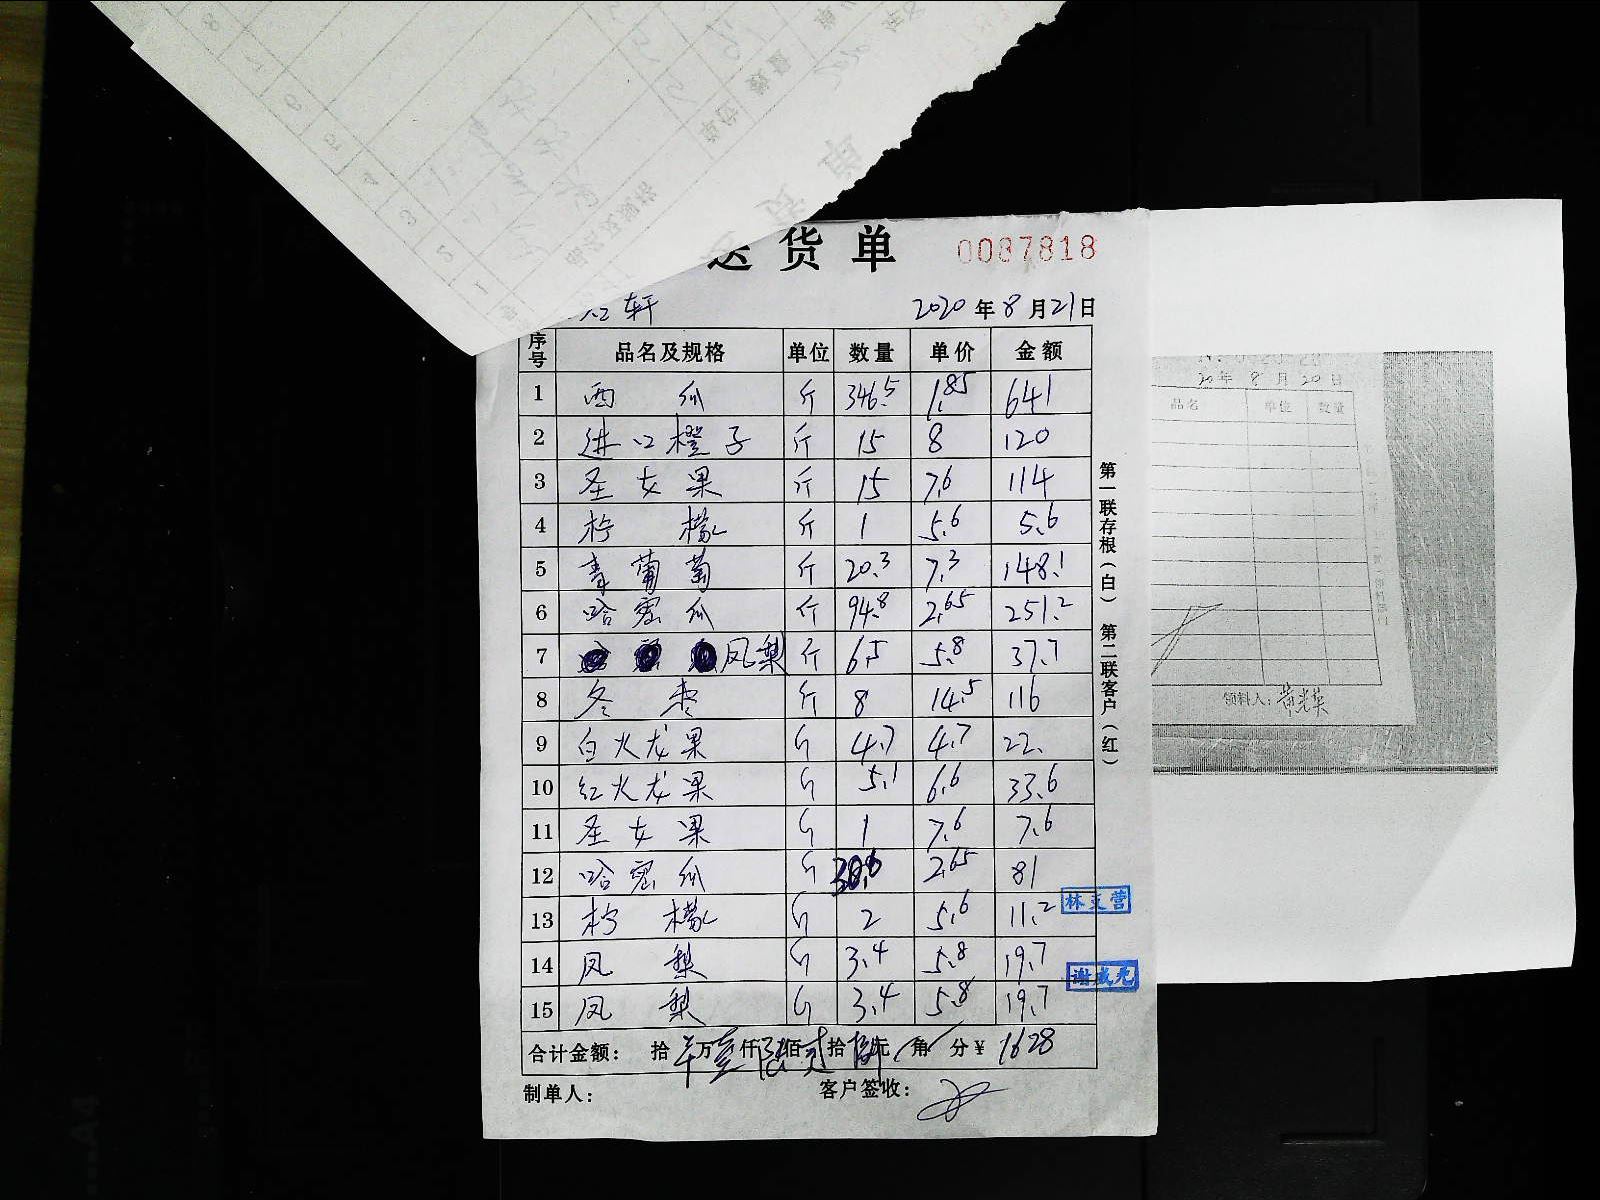 送货单 0087818
轩 2020年8月21日
序号 品名及规格 单位 数量 单价 金额
1 西瓜 斤 346.5 1.85 641
2 进口橙子 斤 15 8 120
3 圣女果 斤 15 7.6 114
4 柠檬 斤 1 5.6 5.6
5 青葡萄 斤 20.3 7.3 148.1
6 哈密瓜 斤 94.8 2.65 251.2
7 凤梨 斤 6.5 5.8 37.7
8 冬枣 斤 8 14.5 116
9 白火龙果 斤 4.7 4.7 22.
10 红火龙果 斤 5.1 6.6 33.6
11 圣女果 斤 1 7.6 7.6
12 哈密瓜 斤 30.6 2.65 81
13 柠檬 斤 2 5.6 11.2
14 凤梨 斤 3.4 5.8 19.7
15 凤梨 斤 3.4 5.8 19.7
合计金额： 拾 万壹仟陆佰贰拾捌元 角 分￥ 1628
制单人： 客户签收：
第一联存根（白） 第二联客户（红）
林支营
谢威光
20年8月20日
品名 单位 数量
领料人：黄光英